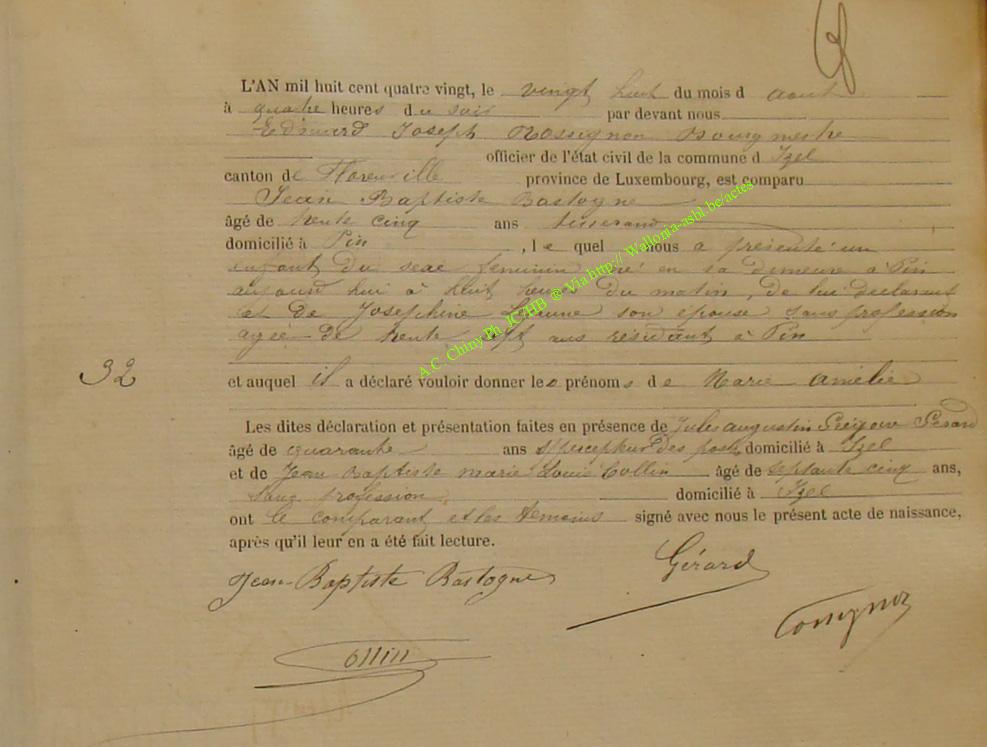 L'AN mil huit cent quatre vingt, le vingt huit du mois d août
à quatre heures du soir par devant nous
Edouard Joseph Rossignon Bourgmestre
officier de l'état civil de la commune d Izel
canton de Florenville province de Luxembourg, est comparu
Jean Baptiste Bastogne
âgé de trente cinq ans tisserand
domicilié à Pin, le quel nous a présenté un
enfant du sexe féminin né en sa demeure à Pin
aujourd'hui à huit heures du matin, de lui déclarant
et de Josephine son epouse sans profession
agée de trente sept ans résidant à Pin
32
et auquel il a déclaré vouloir donner les prénoms de Marie Amélie
Les dites déclaration et présentation faites en présence de Jules Augustin Gérard
âgé de quarante ans percepteur des postes domicilié à Izel
et de Jean Baptiste Marie Louis Collin âgé de septante cinq ans,
sans profession domicilié à Izel
ont le comparant et les témoins signé avec nous le présent acte de naissance,
après qu'il leur en a été fait lecture.
Jean-Baptiste Bastogne
Gérard
Collin
A.C. Chiny Ph. JCZHB ® Via http:// Wallonia-asbl.be/actes